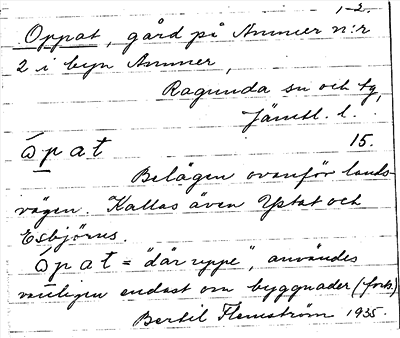 1-2.
Oppat, gård på Ammer n:r
2 i byn Ammer,
Ragunda sn och tg,
Jämtl. l.
åpat 15.
Belägen ovanför lands-
vägen. Kallas även Ystat och
Esbjörns.
åpat = "där uppe", användes
vanligen endast om byggnader (forts)
Bertil Flemström 1935.